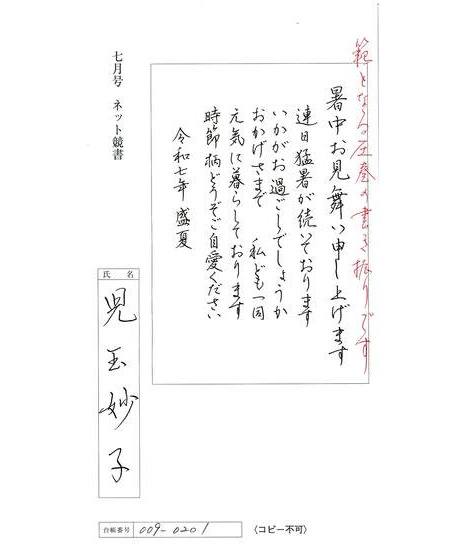 範となる圧巻の書き振りです
暑中お見舞い申し上げます
連日猛暑が続いております
いかがお過ごしでしょうか
おかげさまで　私ども一同
元気に暮らしております
時節柄どうぞご自愛ください
令和七年 盛夏
七月号 ネット競書
氏名
児玉妙子
台帳番号 009-0201
〈コピー不可〉